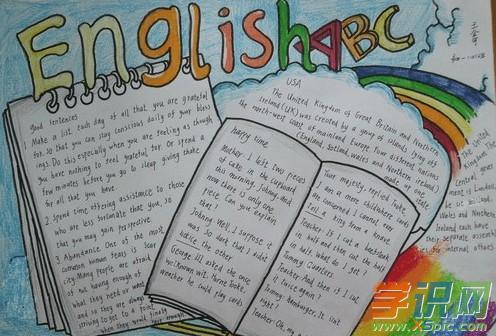 English ABC
Good sentences
1 Make a list each day of all that you are grateful
for, so that you can stay conscious daily of your bless
ings. Do this especially when you are feeling as though
you have nothing to feel grateful for. Or spend a
few minutes before you go to sleep giving thanks
for all that you have.
2 Spend time offering assistance to those
who are less fortunate than you, so
that you may gain perspective.
3 Abundance. One of the most
common human fears is scar
city. Many people are afraid
of not having enough of
what they need or want,
and so they are always
striving to get to a point
when they would finally
happy time
Mother: I left two pieces
of cake in the cupboard
this morning, Johnny. And
now there is only one
piece. Can you explain
that?
Johnny: Well, I suppose it
was so dark that I didn't
notice the other
George III, asked the once
well-known wit
whether he could play cards.
Your majesty, replied
I am a mere
are concerned I cannot even
tell a king from a knave.
Teacher: If I cut a beefsteak
in half and then cut the half
in half, what do I get?
Tommy: Quarters.
Teacher: And then if I cut
it twice again?
Tommy: hamburger.
right?
Teacher: Oh, my
USA
The United Kingdom of Great Britain and Northern
Ireland (UK) was created by a group of islands lying off
the north-west coast of mainland Europe. Four different nations
(England, Scotland, Wales and Northern Ireland)
make up one
state
The United
Kingdom. The
Central
ment is London
Wales and Northern
Ireland each have
their separate
internal affairs.
学识网
www.xspic.com